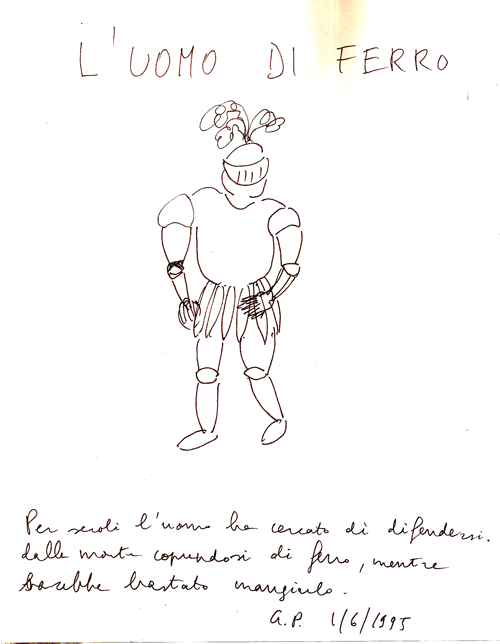 L'UOMO DI FERRO
Per secoli l'uomo ha cercato di difendersi.
dalla morte coprendosi di ferro, mentre
sarebbe bastato mangiarlo.
G.P. 1/6/1995